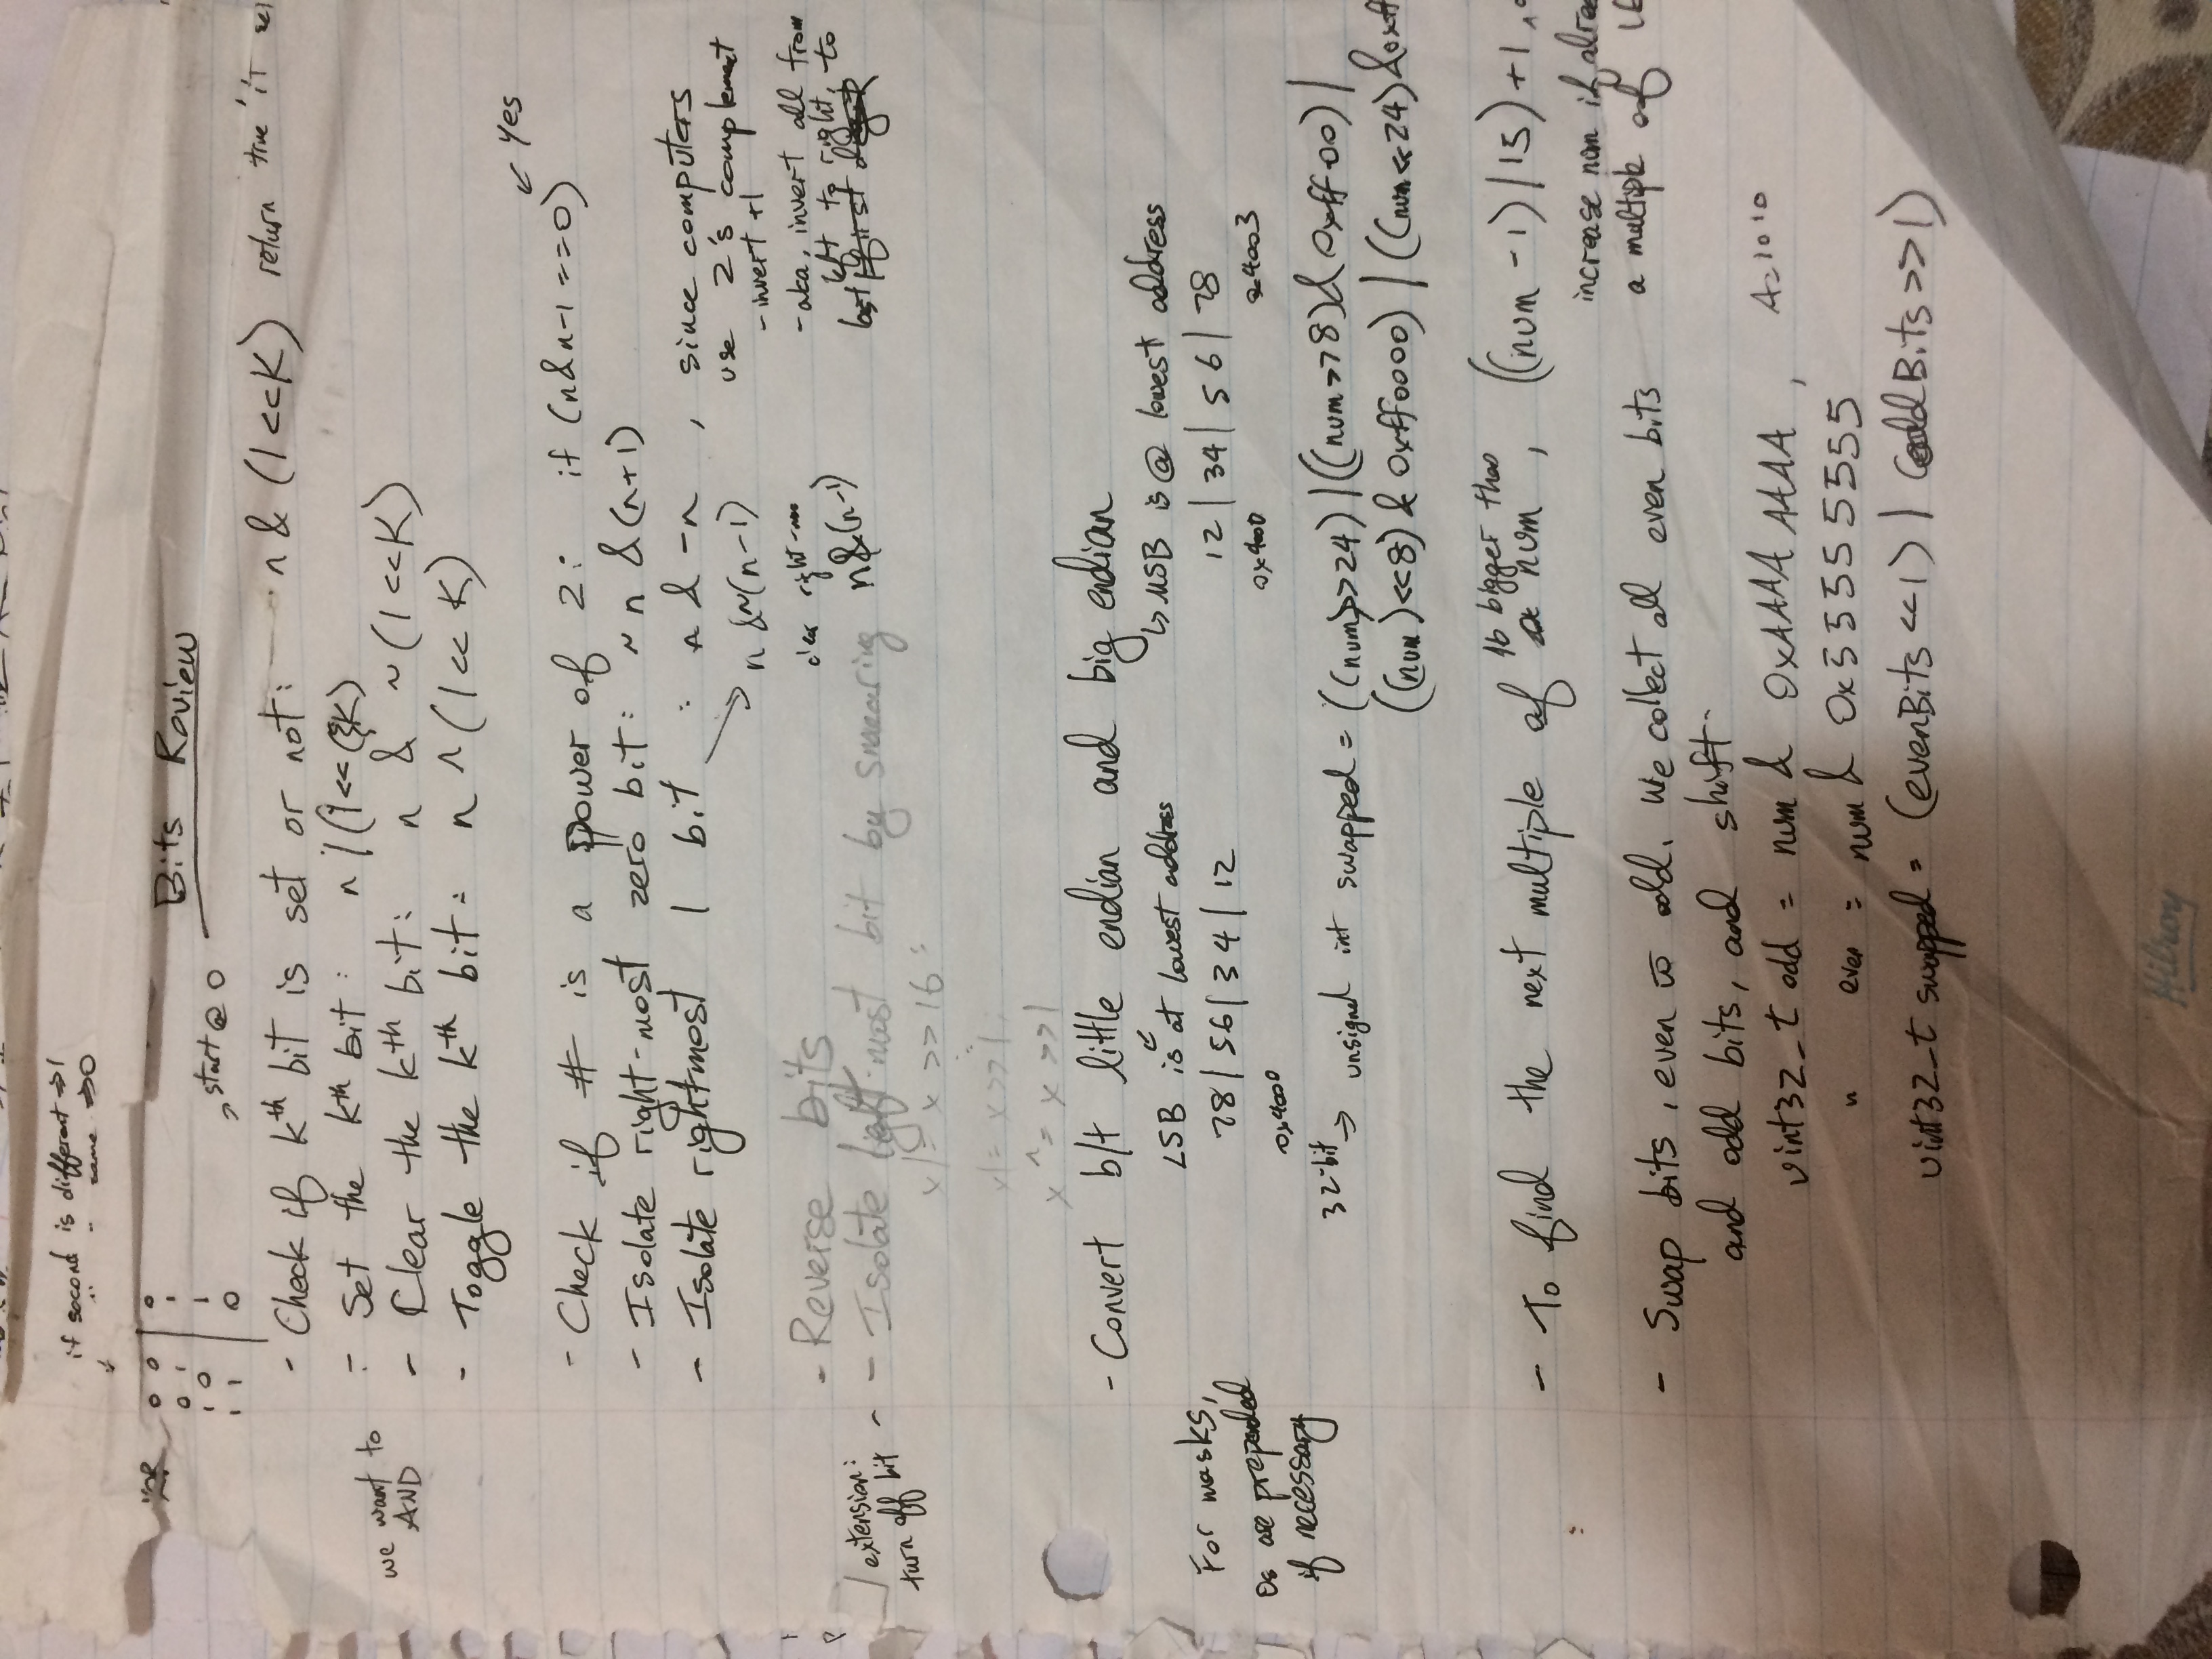 if second is different => 1
" " same => 0
XOR
0 0 | 0
0 1 | 1
1 0 | 1
1 1 | 0
Bits Review
start @ 0
- Check if kth bit is set or not: n & (1<<K) return true if set
- Set the kth bit: n | (1<<K)
we want to
AND
- Clear the kth bit: n & ~(1<<K)
- Toggle the kth bit: n ^ (1<<K)
Yes
- Check if # is a power of 2: if (n&n-1==0)
- Isolate right-most zero bit: ~n &(n+1)
- Isolate rightmost 1 bit : n & -n , since computers
use 2's complement
n &~(n-1)
- invert +1
clear right-mos
- aka, invert all from
left to right, to
n&(n-1)
last first digit
- Reverse bits
extension:
turn off bit
- Isolate left-most bit by smearing
x|= x >>16;
:
x|= x>>1;
x ^= x >>1
- Convert b/t little endian and big endian
LSB is at lowest address
MSB is @ lowest address
78 | 56 | 34 | 12
12 | 34 | 56 | 78
0x4000
0x4000
0x4003
For masks,
0s are prepended
if necessary
32-bit -> unsigned int swapped = ((num)>>24) | ((num>>8)& 0xff00) |
((num)<<8) & 0xff0000) | ((num<<24) &0xff
- To find the next multiple of 16 bigger than num, ((num - 1) | 15) +1,
increase num if alrea
a multiple of 16
- Swap bits, even to odd. We collect all even bits
and odd bits, and shift.
uint32_t odd = num & 0xAAAA AAAA , A=1010
" even = num & 0x55555555
uint32_t swapped = (evenBits <<1) | (oddBits>>1)
Hilroy